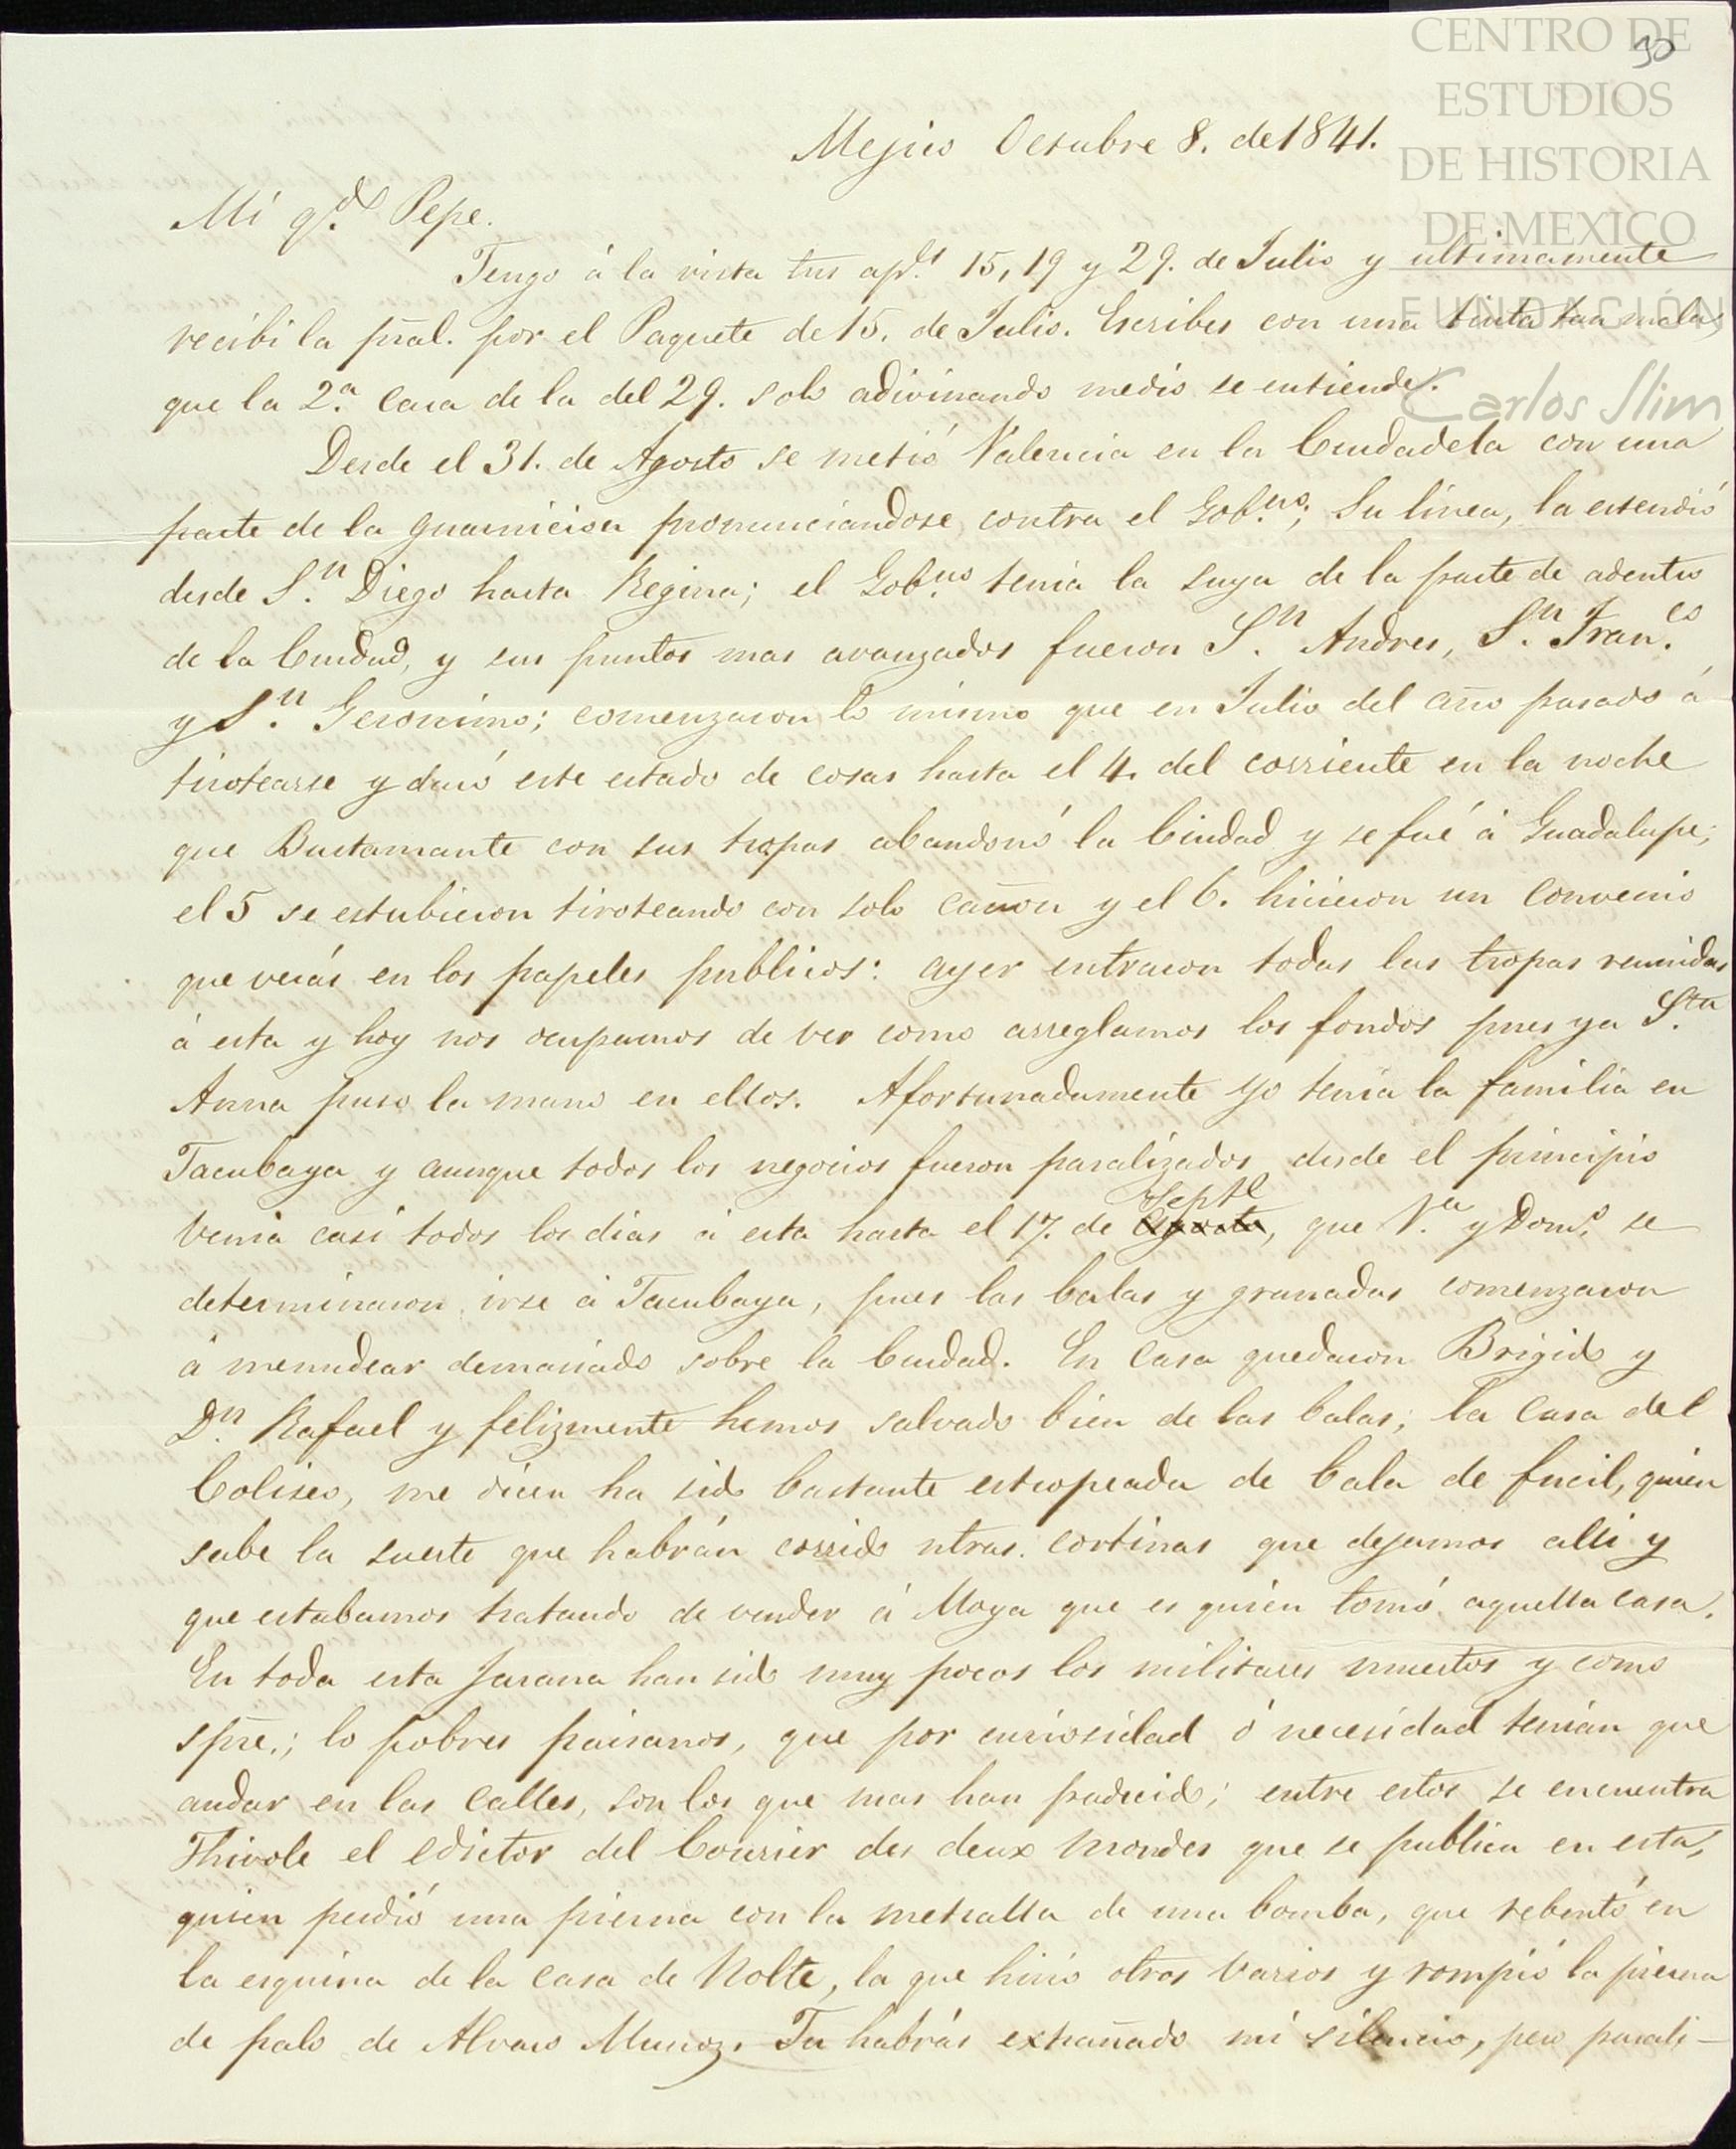 CENTRO DE
ESTUDIOS
DE HISTORIA
DE MEXICO
FUNDACIÓN
Carlos Slim
30
Mejico Octubre 8. de 1841.
Mi q.do Pepe.
Tengo á la vista tus ap.s 15, 19 y 29. de Julio y ultimamente
recibi la pral. por el Paquete de 15. de Julio. Escribes con una tinta tan mala,
que la 2.a cara de la del 29. solo adivinando medio se entiende.
Desde el 31. de Agosto se metió Valencia en la Ciudadela con una
parte de la guarnicion pronunciandose contra el Gob.no; Su línea, la estendió
desde S.n Diego hasta Regina; el Gob.no tenia la suya de la parte de adentro
de la Ciudad, y sus puntos mas avanzados fueron S.n Andres, S.n Fran.co
y S.n Geronimo; comenzaron lo mismo que en Julio del año pasado á
tirotearse y duró este estado de cosas hasta el 4. del corriente en la noche
que Bustamante con sus tropas abandonó la Ciudad y se fué á Guadalupe;
el 5 se estubieron tiroteando con solo cañon y el 6. hicieron un convenio
que verás en los papeles publicos: ayer entraron todas las tropas reunidas
á esta y hoy nos ocupamos de ver como arreglamos los fondos pues ya S.ta
Anna puso la mano en ellos. Afortunadamente yo tenia la familia en
Tacubaya y aunque todos los negocios fueron paralizados desde el principio
Septe
venia casi todos los dias á esta hasta el 17. de Agosto, que V.e y Dom.o se
determinaron irse á Tacubaya, pues las balas y granadas comenzaron
á menudear demasiado sobre la Ciudad. En casa quedaron Brigido y
D.n Rafael y felizmente hemos salvado bien de las balas; la casa del
Coliseo, me dicen ha sido bastante estropeada de bala de fucil, quien
sabe la suerte que habrán corrido ntras. cortinas que dejamos alli y
que estabamos tratando de vender á Moya que es quien tomó aquella casa.
En toda esta jarana han sido muy pocos los militares muertos y como
spre.; lo pobres paisanos, que por curiosidad ó necesidad tenian que
andar en las calles, son los que mas han padecido; entre estos se encuentra
Thivole el edictor del Courrier des deux Mondes que se publica en esta,
quien perdió una pierna con la metralla de una bomba, que rebentó en
la esquina de la casa de Nolte, la que hirió otros varios y rompió la pierna
de palo de Alvaro Munoz. Tu habrás extrañado mi silencio, pero parali-